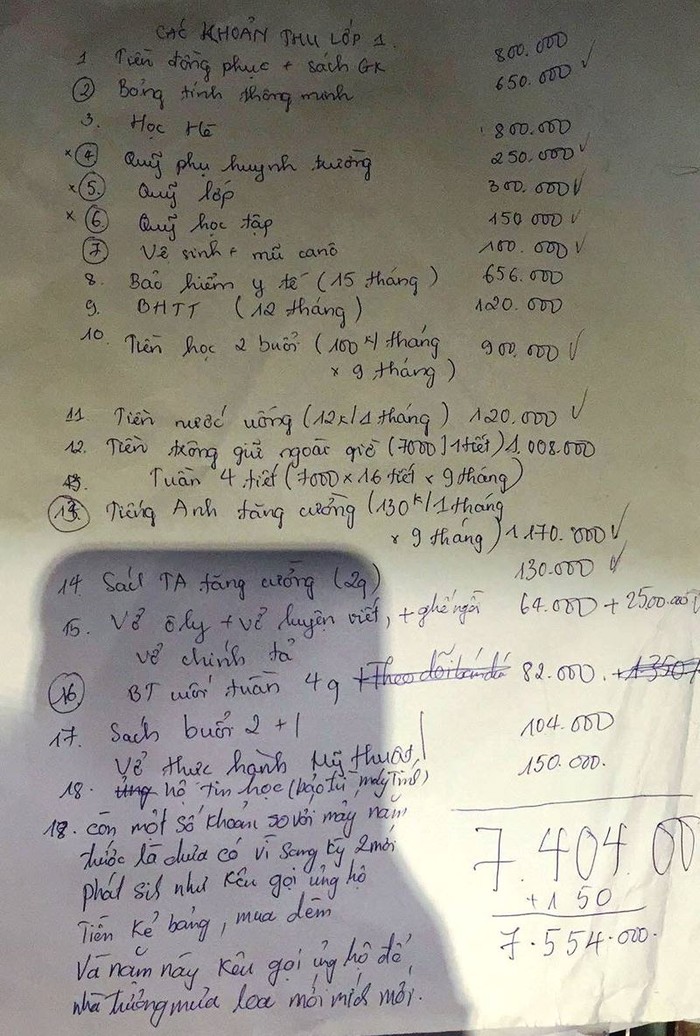 CÁC KHOẢN THU LỚP 1.
1 Tiền đồng phục + sách GK 800.000
2 Bảng tính thông minh 650.000 ✓
3. Học Hè 800.000
× 4 Quỹ phụ huynh trường 250.000 ✓
× 5. Quỹ lớp 300.000 ✓
× 6 Quỹ học tập 150 000 ✓
7 Vệ sinh + mũ canô 100.000 ✓
8. Bảo hiểm y tế (15 tháng) 656.000
9. BHTT (12 tháng) 120.000
10. Tiền học 2 buổi (100K/tháng 900.000 ✓
× 9 tháng)
11. Tiền nước uống (12K/1 tháng) 120.000 ✓
12. Tiền trông giữ ngoài giờ (7000]1tiết) 1.008.000
13. Tuần 4 tiết (7000 × 16 tiết × 9 tháng)
13. Tiếng Anh tăng cường (130K/1 tháng
× 9 tháng) 1 170.000 ✓
14. Sách TA tăng cường (2q) 130.000 ✓
15. Vở ôly + vở luyện viết, + ghế ngồi 64.000 + 2500.000
vở chính tả
16 BT cuối tuần 4q 82.000.
17. Sách buổi 2 + 104.000
Vở thực hành Mỹ thuật
18. hộ tin học (bảo trì máy tính) 150.000.
18. còn một số khoản so với mấy năm
trước là chưa có vì sang kỳ 2 mới
phát sih như kêu gọi ủng hộ
Tiền kẻ bảng, mua đệm
Và năm này kêu gọi ủng hộ để
nhà trường mua loa mới mích mới.
7.404.00
+ 150
7.554.000.